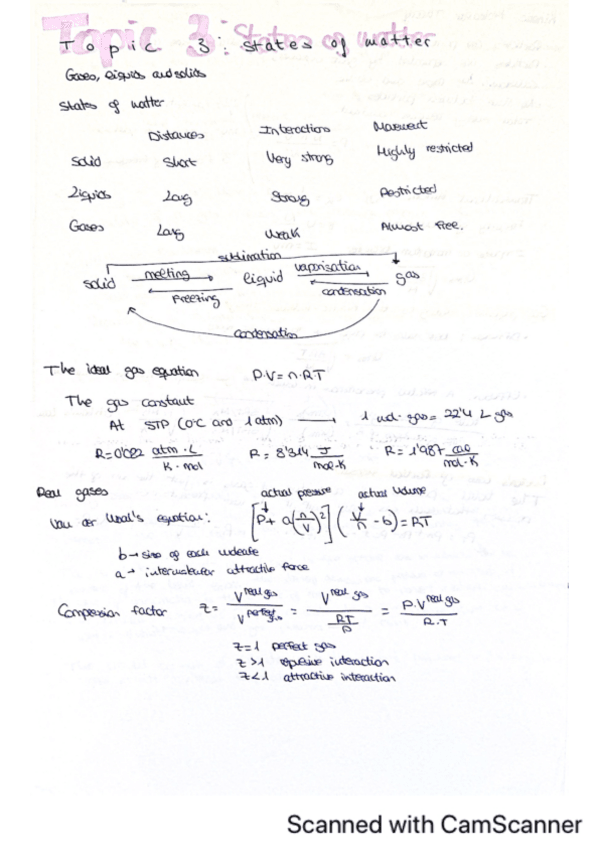 Topic 3: States of matter
Topic 3: states of matter
Gases, liquids and solids
States of matter
Distances Interactions Movement
Solid Short Very strong Highly restricted
Liquids Long Strong Restricted
Gases Long Weak Almost free.
sublimation
solid melting liquid vaporisation gas
freezing condensation
condensation
The ideal gas equation P·V = n·RT
The gas constant
At STP (0ºC and 1 atm) → 1 mol gas = 22'4 L gas
R = 0'082 atm·L / K·mol R = 8'314 J / mol·K R = 1'987 cal / mol·K
Real gases actual pressure actual volume
Van der Waal's equation: [P + a(n/V)²] (V/n - b) = RT
b → size of each molecule
a → intermolecular attractive force
Compression factor Z = V real gas / V perfect gas = V real gas / (RT/P) = P·V real gas / R·T
Z=1 perfect gas
Z>1 repulsive interaction
Z<1 attractive interaction
Scanned with CamScanner